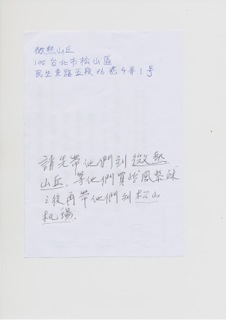 微熱山丘
105 台北市松山區
民生東路五段 36 巷 4 弄 1 號
請先帶他們到 微熱
山丘, 等他們買完鳳梨酥
之後再帶他們到 松山
機場.